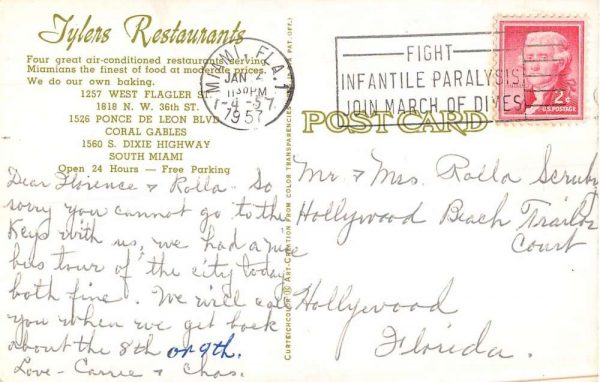 Tylers Restaurants
Four great air-conditioned restaurants serving
Miamians the finest of food at moderate prices.
We do our own baking.
1257 WEST FLAGLER ST.
1818 N. W. 36th ST.
1526 PONCE DE LEON BLVD.
CORAL GABLES
1560 S. DIXIE HIGHWAY
SOUTH MIAMI
Open 24 Hours — Free Parking
Dear Florence & Rolla - So
sorry you cannot go to the
Keys with us, we had a nice
bus tour of the city today
both fine. We will call
you when we get back
about the 8th or 9th.
Love - Carrie & Chas.
CURTEICHCOLOR ART-CREATION FROM COLOR TRANSPARENCY
PAT. OFF.)
MIAMI, FLA.
JAN
1130PM
1-4-57
1957
FIGHT
INFANTILE PARALYSIS
JOIN MARCH OF DIMES
2¢
U.S. POSTAGE
POST CARD
Mr & Mrs. Rolla Scruby
Hollywood Beach Trailer
Court
Hollywood
Florida.